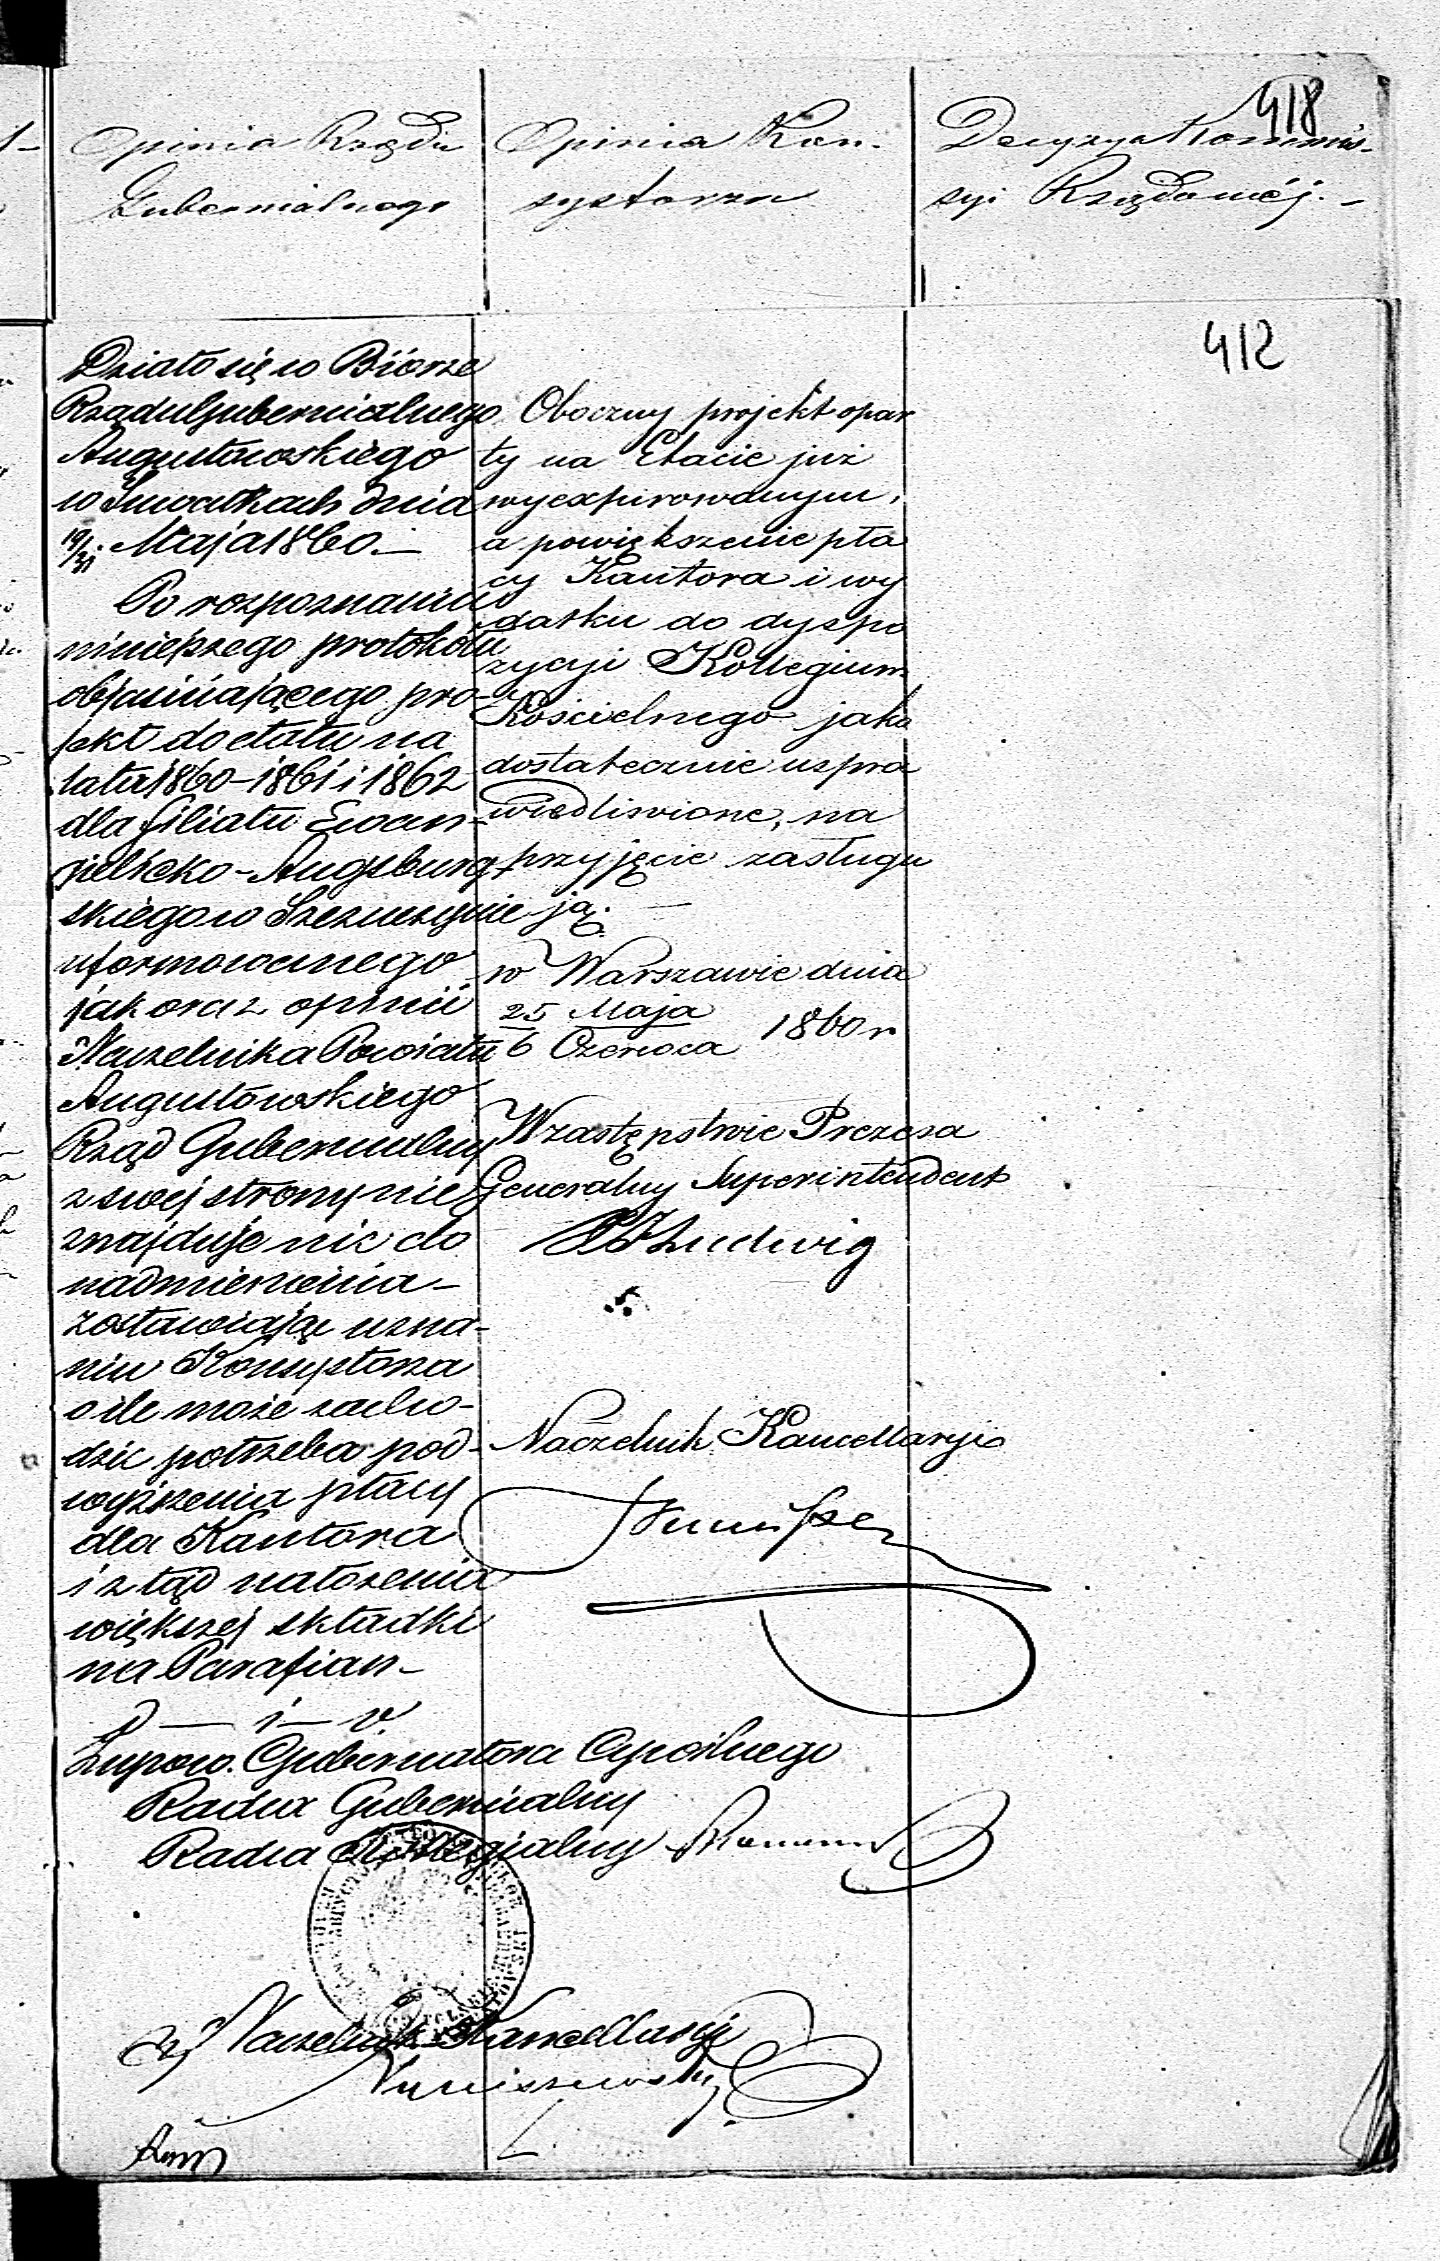 418
Opinia Rządu
Gubernialnego
Opinia Kon-
systorza
Decyzya Kommis-
syi Rządowéj. -
412
Działo się w Biórze
Rządu Gubernialnego
Augustowskiego
w Suwałkach dnia
19/31. Maja 1860. -
Po rozpoznaniu
niniejszego protokółu
objaśniającego pro-
jekt do etatu na
lata 1860-1861 i 1862
dla filiału Ewan-
gielicko-Augsburg-
skiego w Szczuczynie
uformowanego
jak oraz opinii
Naczelnika Powiatu
Augustowskiego
Rząd Gubernialny
z swej strony nie
znajduje nic do
nadmienienia -
zostawiając uzna-
niu Konsystorza
o ile może zacho-
dzić potrzeba pod-
wyższenia płacy
dla Kantora
i z tąd nałożenia
większej składki
na Parafian -
Zupow. Gubernatora Cywilnego
Radca Gubernialny
Radca Kollegialny
Naczelnik Kancellaryi
Oboczny projekt opar
ty na Etacie już
wyexpirowanym,
a powiększenie pła
cy Kantora i wy
datku do dyspo
zycyi Kollegium
Kościelnego jako
dostatecznie uspra
wiedliwione, na
przyjęcie zasługu
ją. -
w Warszawie dnia
25 Maja
6 Czerwca 1860 r
W zastępstwie Prezesa
Generalny Superintendent
Ludwig
Naczelnik Kancellaryi